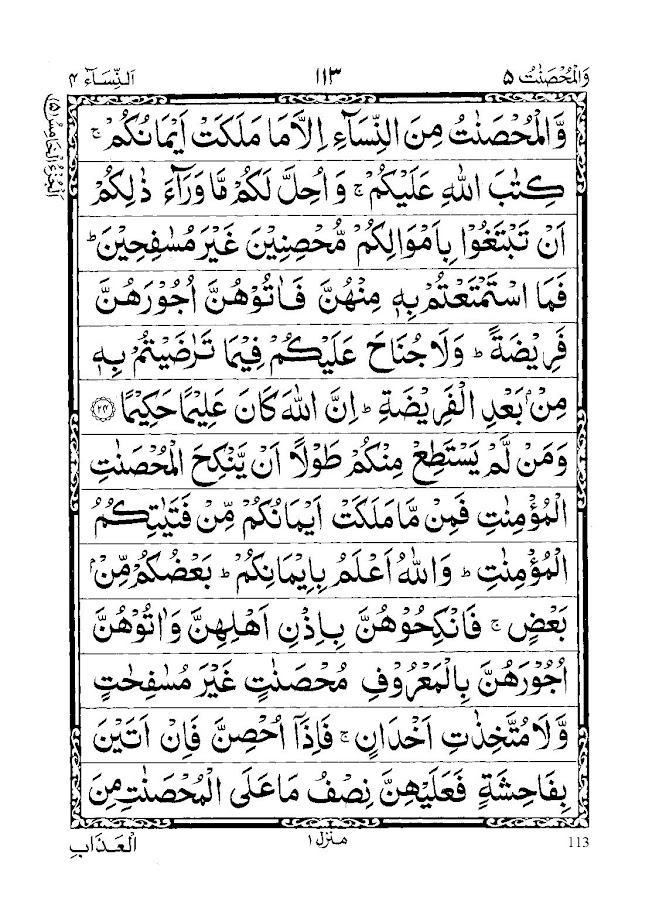 وَالْمُحْصَنٰتُ ۵
۱۱۳
اَلنِّسَآء ۴
اَلْجُزْءُ الْخَامِسُ (۵)
وَّالْمُحْصَنٰتُ مِنَ النِّسَآءِ اِلَّا مَا مَلَكَتْ اَيْمَانُكُمْ ۚ
كِتٰبَ اللّٰهِ عَلَيْكُمْ ۚ وَ اُحِلَّ لَكُمْ مَّا وَرَآءَ ذٰلِكُمْ
اَنْ تَبْتَغُوْا بِاَمْوَالِكُمْ مُّحْصِنِيْنَ غَيْرَ مُسٰفِحِيْنَ ؕ
فَمَا اسْتَمْتَعْتُمْ بِهٖ مِنْهُنَّ فَاٰتُوْهُنَّ اُجُوْرَهُنَّ
فَرِيْضَةً ؕ وَلَا جُنَاحَ عَلَيْكُمْ فِيْمَا تَرٰضَيْتُمْ بِهٖ
مِنْۢ بَعْدِ الْفَرِيْضَةِ ؕ اِنَّ اللّٰهَ كَانَ عَلِيْمًا حَكِيْمًا ﴿۲۴﴾
وَمَنْ لَّمْ يَسْتَطِعْ مِنْكُمْ طَوْلًا اَنْ يَّنْكِحَ الْمُحْصَنٰتِ
الْمُؤْمِنٰتِ فَمِنْ مَّا مَلَكَتْ اَيْمَانُكُمْ مِّنْ فَتَيٰتِكُمُ
الْمُؤْمِنٰتِ ؕ وَاللّٰهُ اَعْلَمُ بِاِيْمَانِكُمْ ؕ بَعْضُكُمْ مِّنْۢ
بَعْضٍ ۚ فَانْكِحُوْهُنَّ بِاِذْنِ اَهْلِهِنَّ وَاٰتُوْهُنَّ
اُجُوْرَهُنَّ بِالْمَعْرُوْفِ مُحْصَنٰتٍ غَيْرَ مُسٰفِحٰتٍ
وَّلَا مُتَّخِذٰتِ اَخْدَانٍ ۚ فَاِذَآ اُحْصِنَّ فَاِنْ اَتَيْنَ
بِفَاحِشَةٍ فَعَلَيْهِنَّ نِصْفُ مَا عَلَى الْمُحْصَنٰتِ مِنَ
113
منزل ۱
الْعَذَابِ